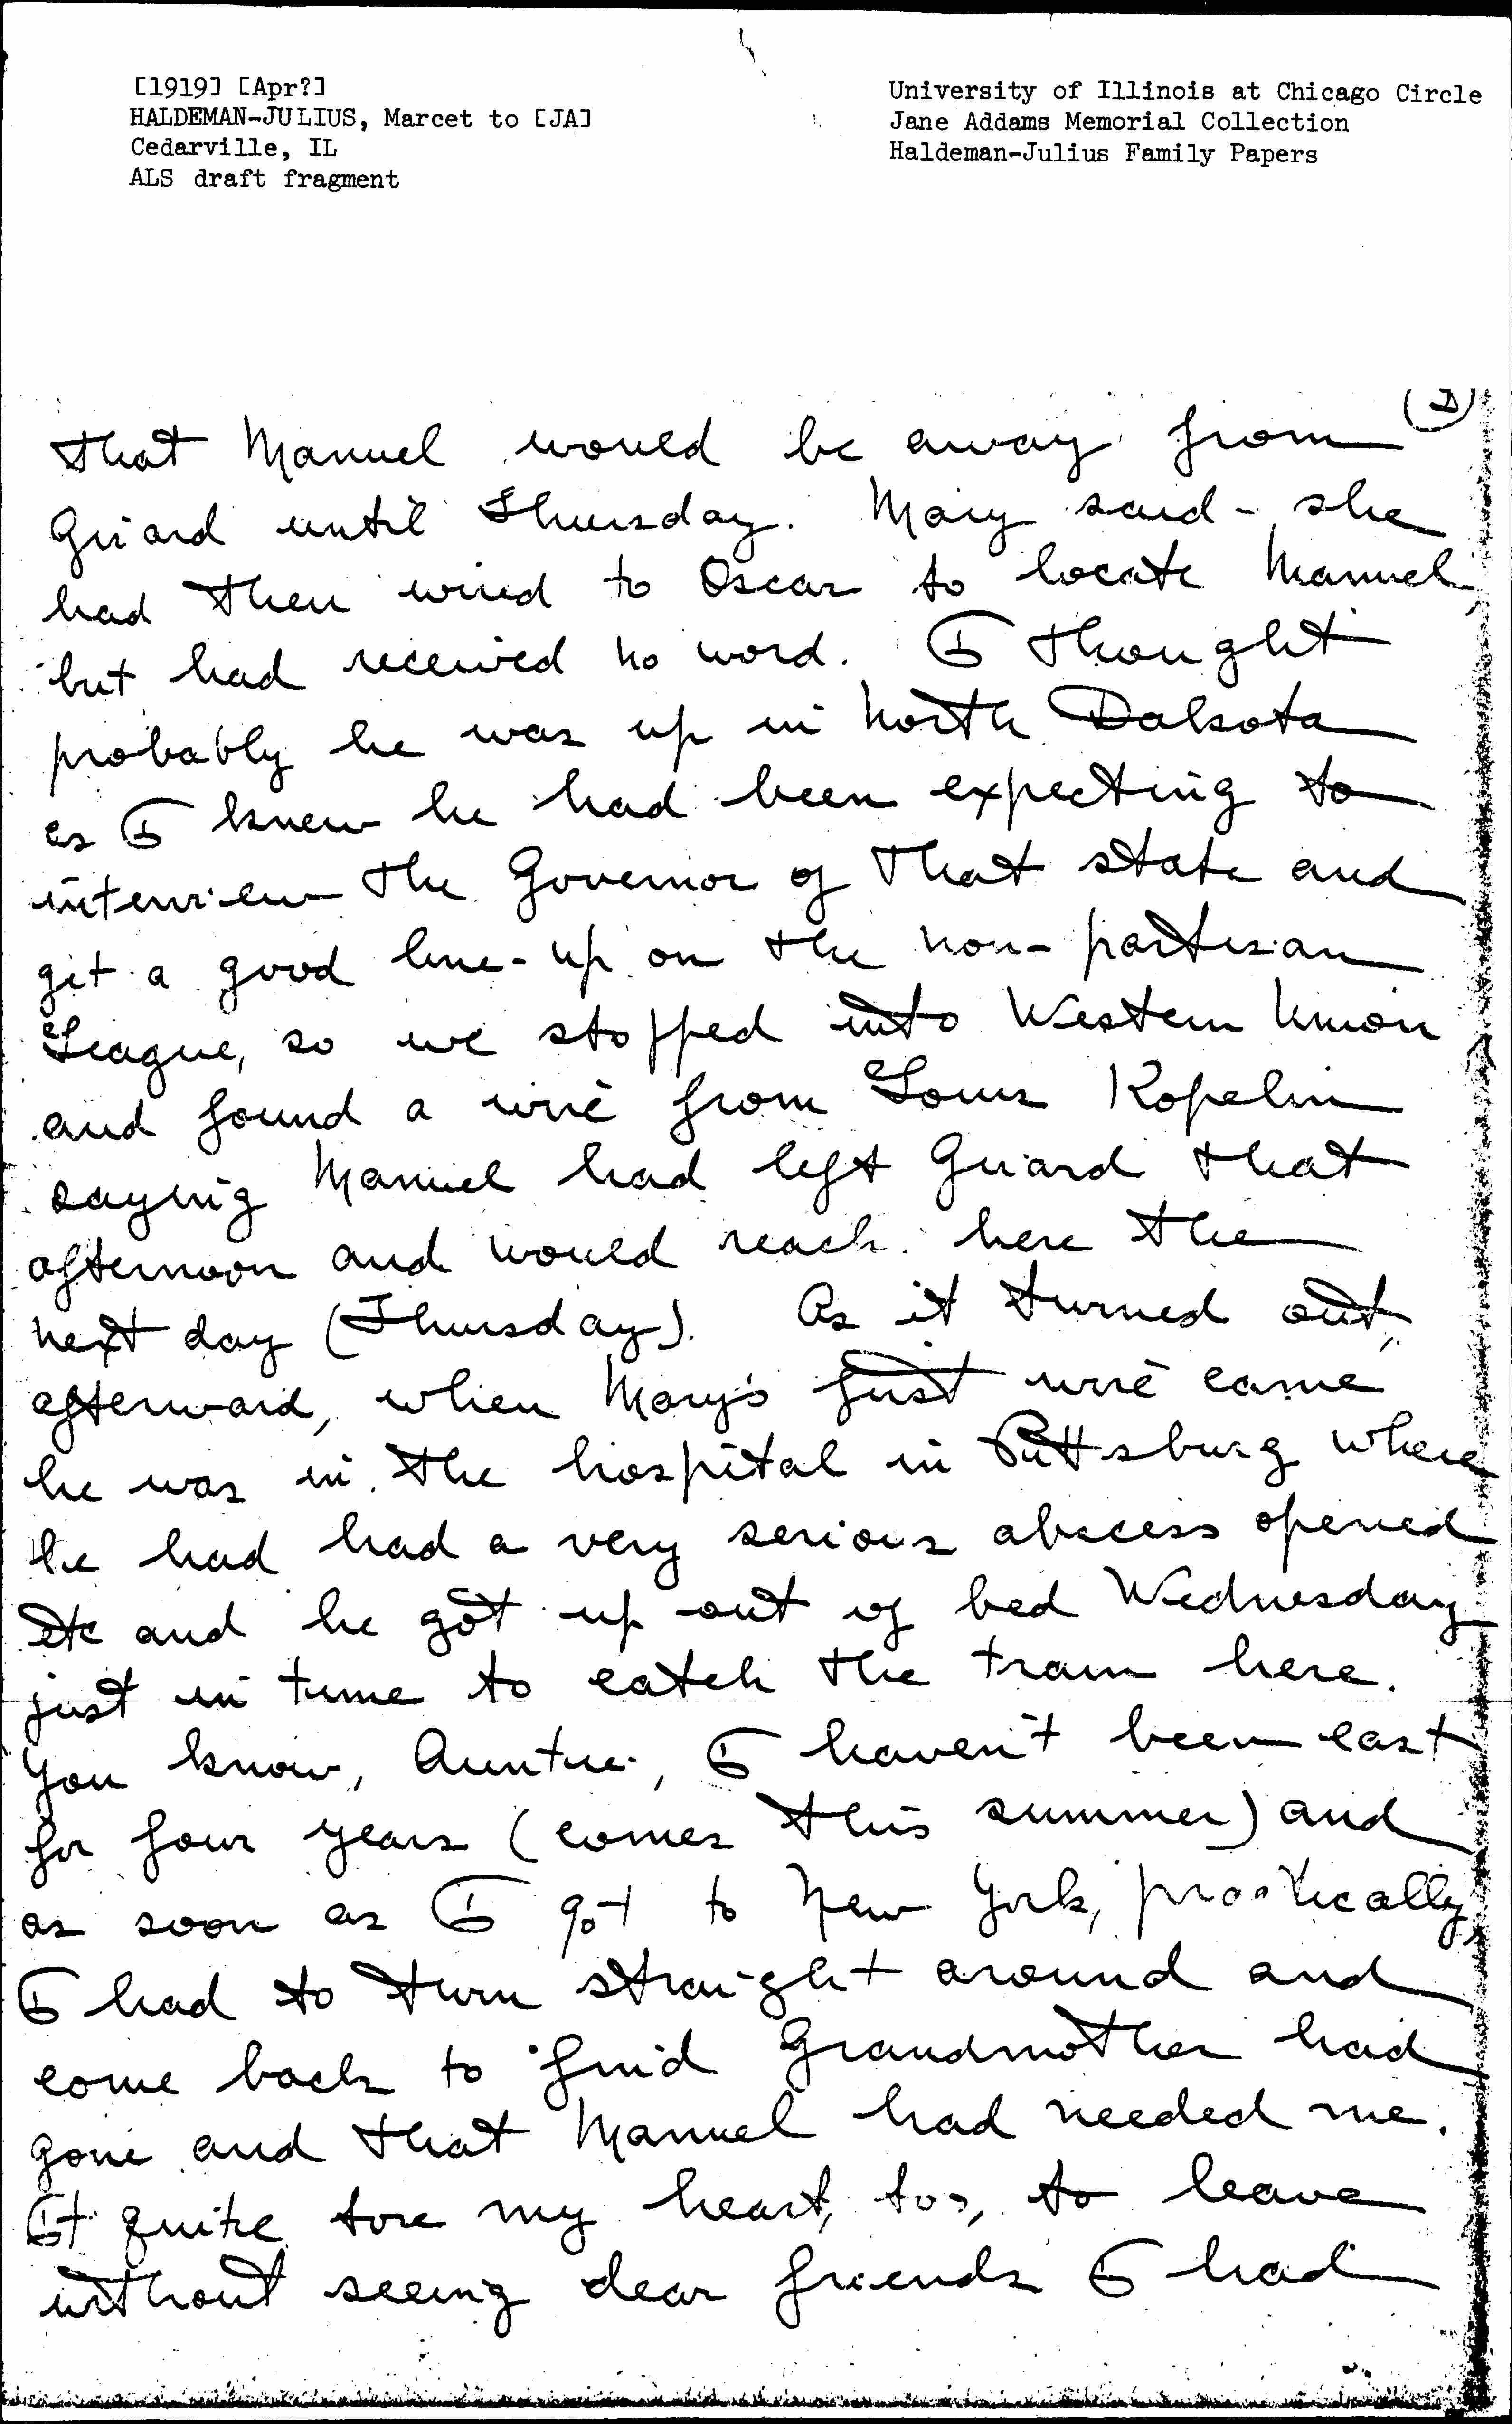 [1919] [Apr?]
HALDEMAN-JULIUS, Marcet to [JA]
Cedarville, IL
ALS draft fragment
University of Illinois at Chicago Circle
Jane Addams Memorial Collection
Haldeman-Julius Family Papers
that Manuel would be away from
Girard until Thursday. Mary said - she
had then wired to Oscar to locate Manuel,
but had received no word. I thought
probably he was up in North Dakota
as I knew he had been expecting to
interview the Governor of that state and
get a good line-up on the non-partisan
League, so we stopped into Western Union
and found a wire from Louis Kopelin
saying Manuel had left Girard that
afternoon and would reach here the
next day (Thursday). As it turned out,
afterward, when Mary's first wire came
he was in the hospital in Pittsburg where
he had had a very serious abscess opened
etc and he got up out of bed Wednesday
just in time to catch the train here.
You know, Auntie, I haven't been east
for four years (comes this summer) and
as soon as I got to New York, practically,
I had to turn straight around and
come back to find Grandmother had
gone and that Manuel had needed me.
It quite tore my heart, too, to leave
without seeing dear friends I had